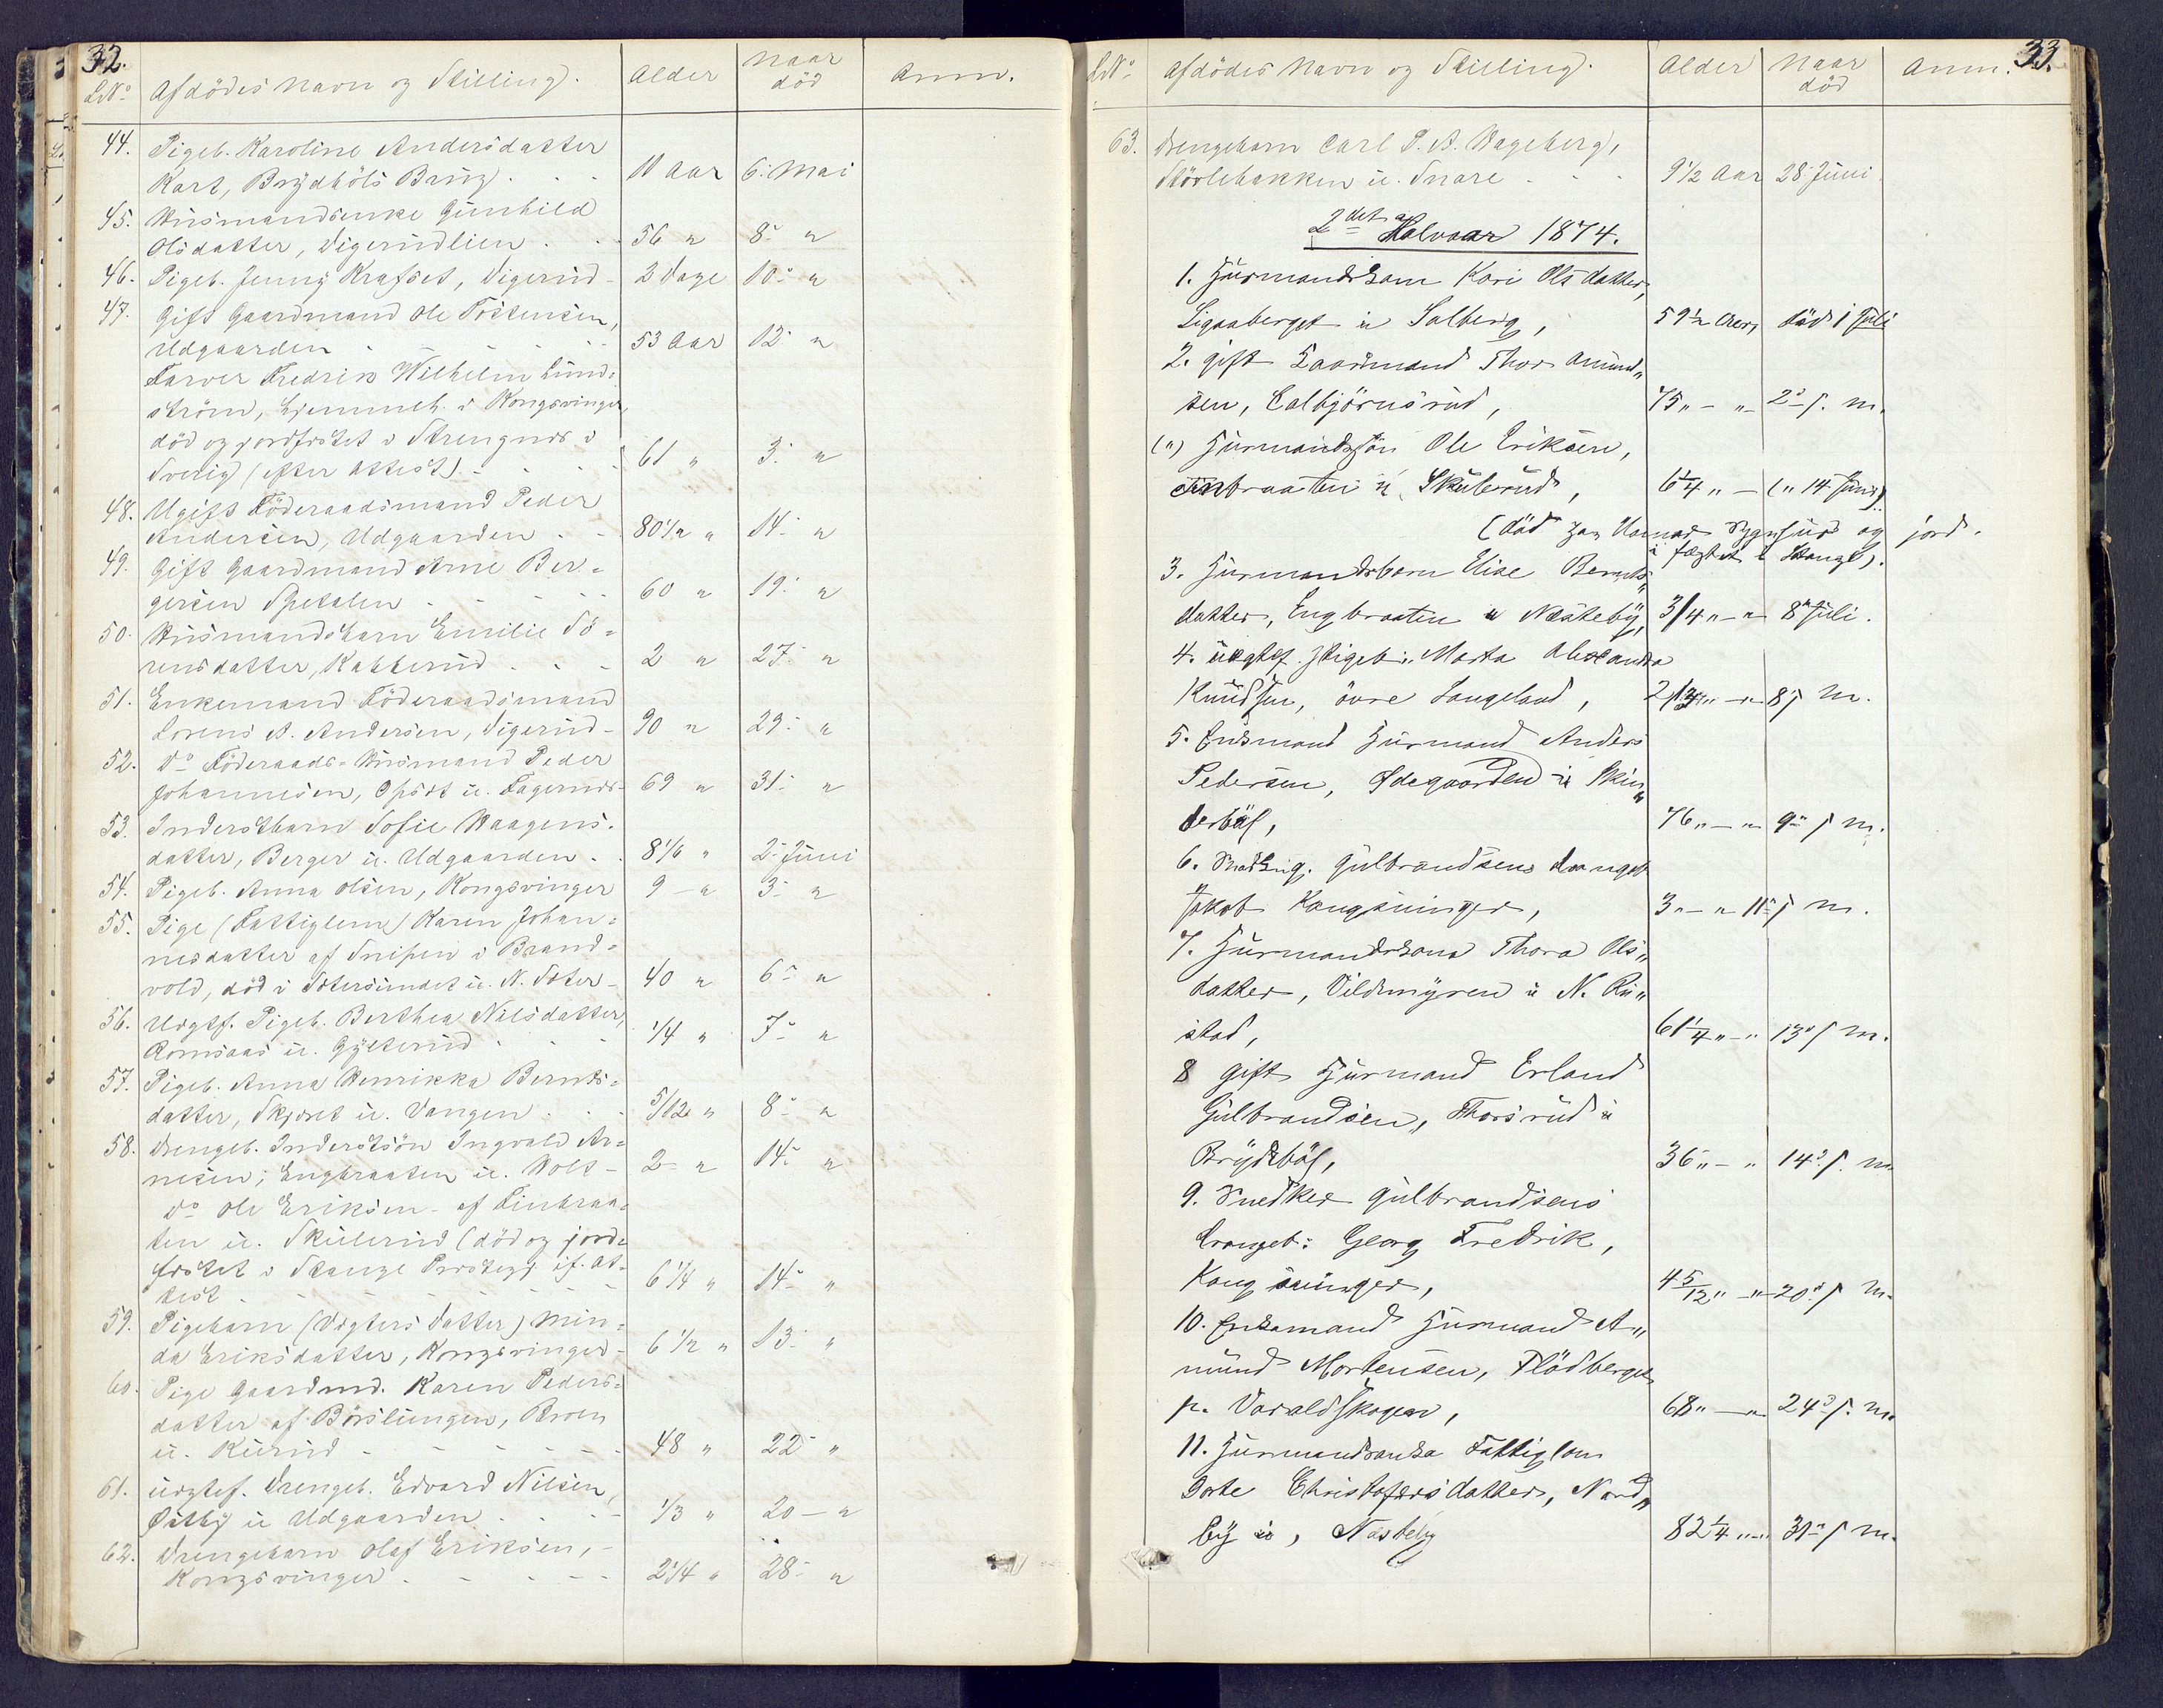 32.
LNo Afdödes Navn og Stilling. Alder Naar död Anm.
44. Pigeb. Karoline Andersdatter
Kart, Brydböls Brug. 11 Aar 6. Mai
45. Husmandsenke Gunhild
Olsdatter, Digerudlien 56 " 8. "
46. Pigeb. Jenny Krafset, Digerud 2 Dage 10. "
47. Gift Gaardmand Ole Tostensen,
Udgaarden 53 Aar 12. "
Farver Fredrik Wilhelm Lund-
ström, hjemmeh. i Kongsvinger,
död og jordfæstet i Strengnæs i
Sverig (efter Attest) 61 " 3. "
48. Ugift Föderaadsmand Peder
Andersen, Udgaarden 80 1/2 " 14. "
49. Gift Gaardmand Arne Ber-
gersen Spetalen 60 " 19. "
50. Husmandsbarn Emilie Sö-
rensdatter, Kabberud 2 " 27. "
51. Enkemand Föderaadsmand
Lorens A. Andersen, Digerud 90 " 29. "
52. Do Föderaads-Husmand Peder
Johannesen, Opsæt u. Fagernæs 69 " 31. "
53. Inderstbarn Sofie Haagens-
datter, Berger u. Udgaarden 8 1/6 " 2. Juni
54. Pigeb. Anna Olsen, Kongsvinger 9 - " 3. "
55. Pige (Fattiglem) Karen Johan-
nesdatter af Snipen i Brand-
vold, död i Sætersundet u. N. Sæter 40 " 6. "
56. Uægtf. Pigeb. Berthea Nilsdatter,
Romsaas u. Gylterud 1/4 " 7. "
57. Pigeb. Anna Henrikka Bernts-
datter, Skjæret u. Vangen 5/12 " 8. "
58. Drengeb. Inderstsön Ingvald Ar-
nesen, Engbraaten u. Holt 2 " 14. "
Do Ole Eriksen af Finbraa-
ten u. Skulerud (död og jord-
fæstet i Stange Præsteg. if. At-
test 6 1/4 " 14. "
59. Pigebarn (Vægters Datter) Min-
da Eriksdatter, Kongsvinger 6 1/2 " 13. "
60. Pige Gaardmd. Karen Peders-
datter af Börslungen, Broen
u. Rurud 48 " 22. "
61. uægtef. Drengeb. Edvard Nilsen,
Østby u. Udgaarden 1/3 " 20 - "
62. Drengebarn Olaf Eriksen,
Kongsvinger 2 1/4 " 28. "
33.
LNo Afdödes Navn og Stilling. Alder Naar död Anm.
63. Drengebarn Carl P. A. Hageberg,
Störlebakken u. Snare 9 1/2 Aar 28. Juni
2det Halvaar 1874.
1. Husmandskone Kari Olsdatter,
Ligaaberget u Solberg, 59 1/2 Aar, död 1 Juli
2. gift Gaardmand Thor Amund„
sen, Calbjörnsrud, 75 „ - „ 2. s. m.
(„) Husmandssön Ole Eriksen,
Finbraaten u. Skulerud, 6 1/4 „ - („ 14. Juni)
(död paa Hamar Sygehus og jord-
fæstet i Stange).
3. Husmandsbarn Elise Bernts„
datter, Engbraaten u Næsteby, 3/4 „ - „ 8. Juli.
4. uægtef. Pigeb: Marta Alexandra
Knudsen, övre Langeland, 2 1/4 „ - „ 8 s m.
5. Enkemand Husmand Anders
Pedersen, Ødegaarden u Skin„
derböl, 76 „ - „ 9. s m.
6. Snedkerg. Gulbrandsens drengeb
Jakob Kongsvinger, 3 „ - „ 11. s m.
7. Husmandskone Thora Ols„
datter, Vildmyren u N. Ru„
stad, 61 1/4 „ - „ 13. s m.
8 gift Husmand Erland
Gulbrandsen, Thorsrud u
Brydböl, 36 „ - „ 14. s. m
9. Snedker Gulbrandsens
Drengeb: Georg Fredrik,
Kongsvinger, 4 5/12 „ - „ 20. s m.
10. Enkemand Husmand A„
mund Mortensen, Flödberget
p. Varaldskogen, 68 „ - „ 24. s. m.
11. Husmandsenke Fattiglem
Dorte Christofersdatter, Nord„
by u, Næsteby 82 1/4 „ - „ 31. s m.